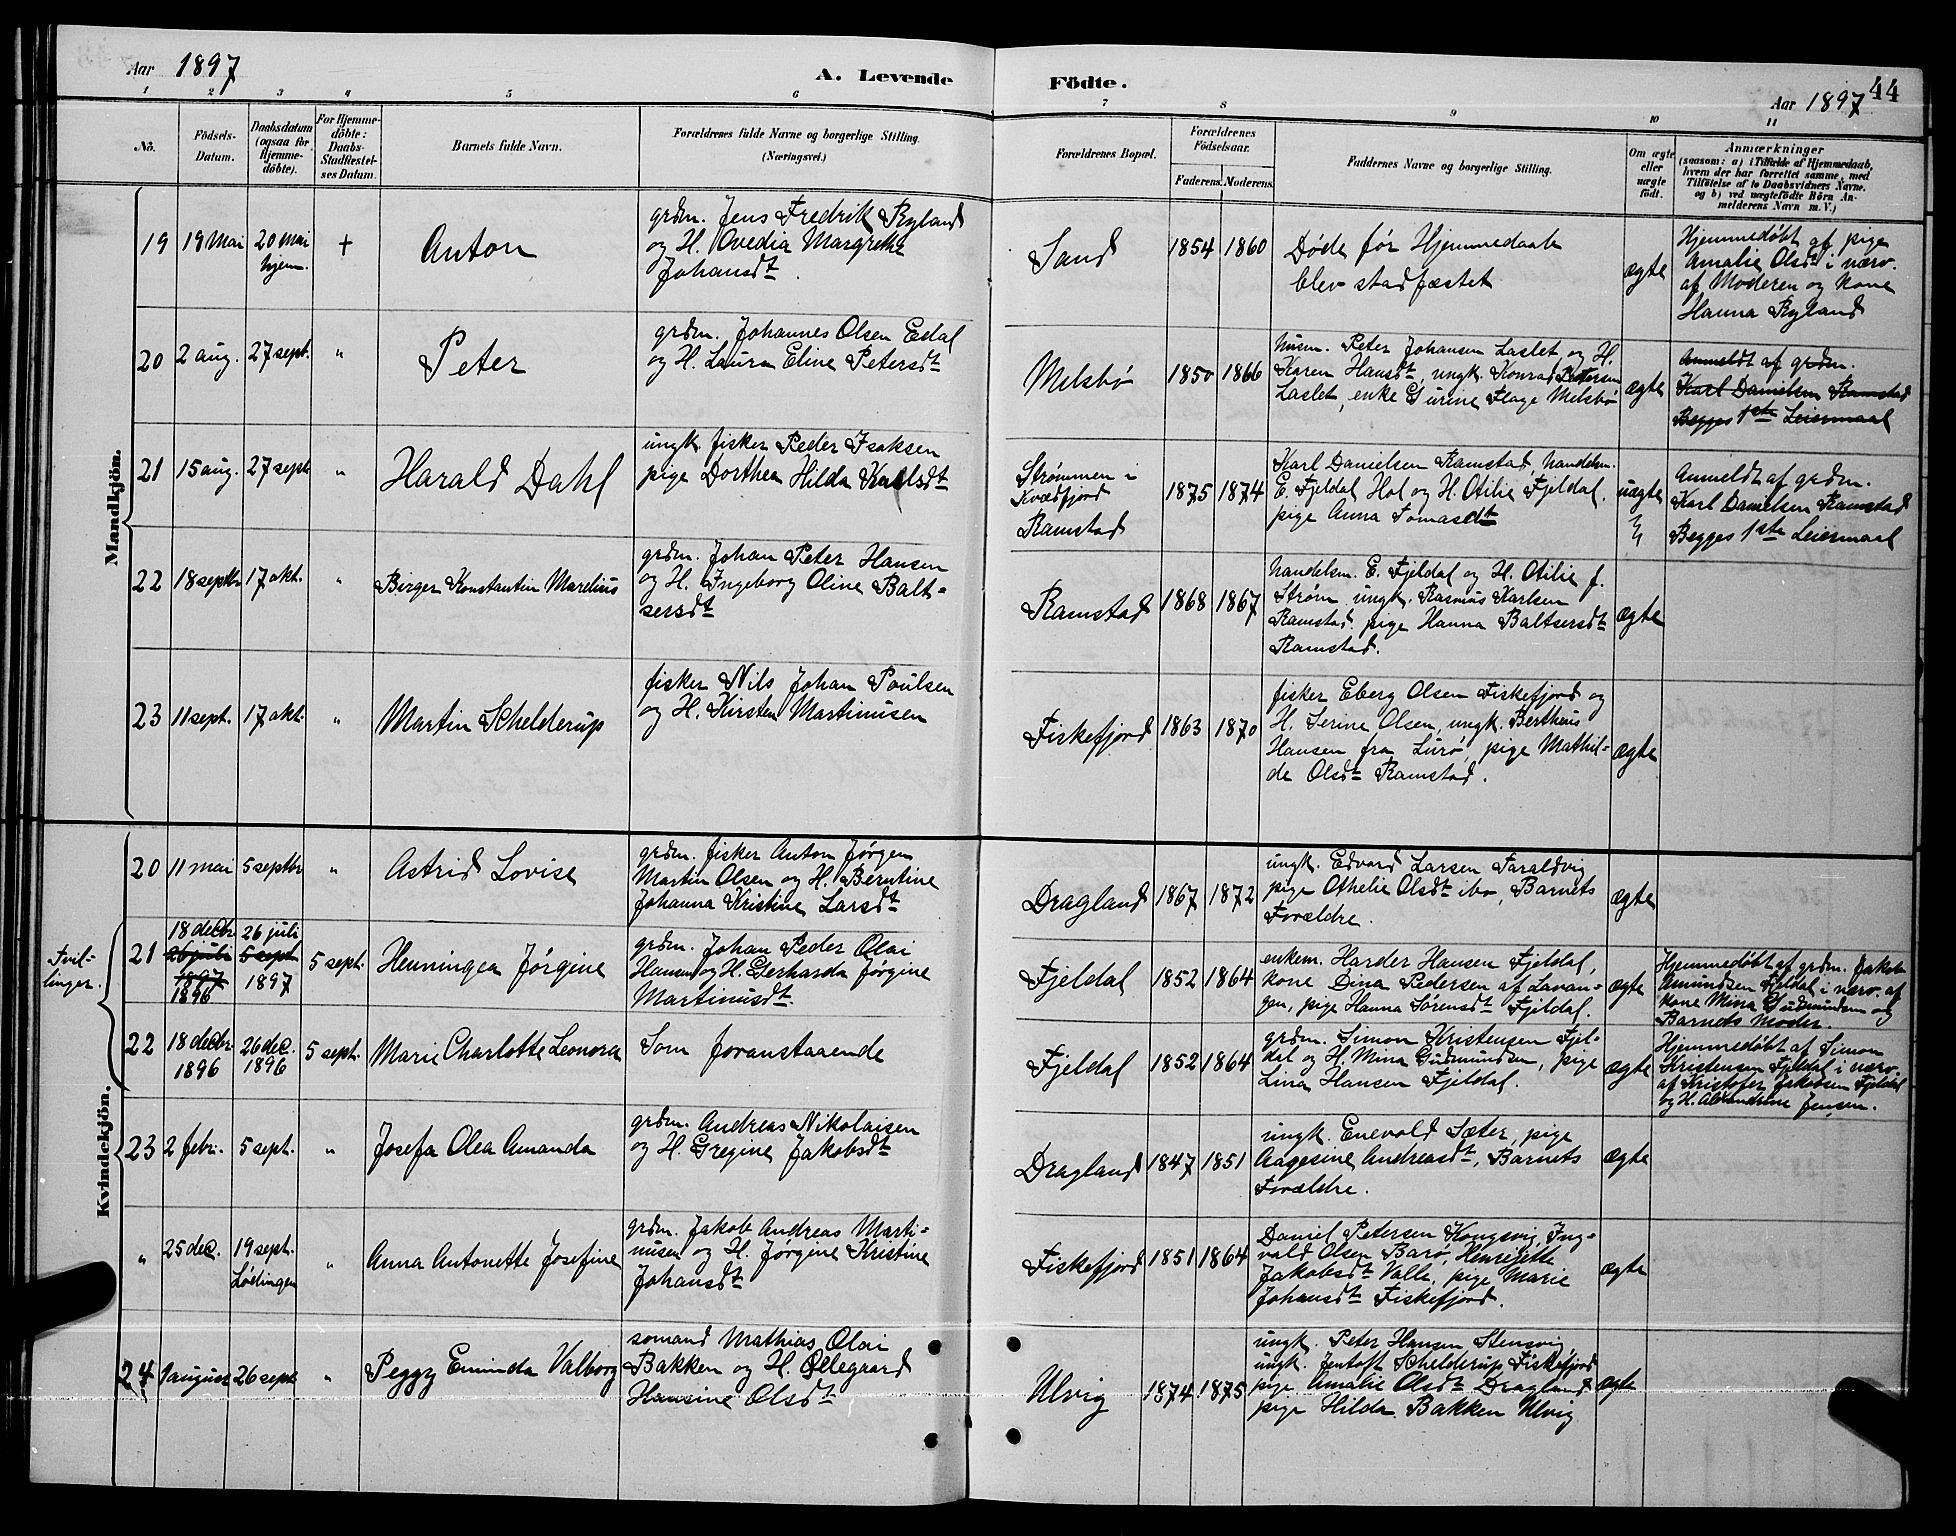 Aar 1897
A. Levende Födte.
Aar 1897
44
1 2 3 4 5 6 7 8 9 10 11
No.
Födsels-Datum.
Daabsdatum (ogsaa for Hjemme-döbte).
For Hjemme-döbte: Daabs-Stadfæstel-ses Datum.
Barnets fulde Navn.
Forældrenes fulde Navne og borgerlige Stilling.
(Næringsvei.)
Forældrenes Bopæl.
Forældrenes Födselsaar.
Faderens. Moderens.
Faddernes Navne og borgerlige Stilling.
Om ægte eller uægte födt.
Anmærkninger
(saasom: a) i Tilfælde af Hjemmedaab,
hvem der har forrettet samme, med
Tilföielse af to Daabsvidners Navne.
og b) ved uægtefödte Börn An-
melderens Navn m. V.)
Mandkjön.
19 19 Mai 20 Mai hjem. + Anton
grdm. Jens Fredrik Ryland
og H. Ovedia Margrethe
Johansdt.
Sand 1854 1860
Døde før Hjemmedaab
blev stadfæstet
ægte
Hjemmedøbt af pige
Amalie Olsdt i nærv.
af Moderen og kone
Hanna Ryland
20 2 aug. 27 sept. " Peter
grdm. Johannes Olsen Edal
og H. Laura Eline Petersdt
Melsbö 1850 1866
husm. Peter Johansen Laslet og H.
Karen Hansdt, ungk. Konrad Petersen
Laslet, enke Gurine Flage Melsbö
ægte
Anmeldt af grdm.
Karl Danielsen Ramstad
Begges 1ste Leiermaal
21 15 aug. 27 sept " Harald Dahl
ungk. fisker Peder Isaksen
pige Dorthea Hilda Karlsdt
Strømmen i
Kvædfjord
Ramstad
1875 1874
Karl Danielsen Ramstad, handelsm.
E. Fjeldal Hol og H. Otilie Fjeldal.
pige Anna Tomasdt
uægte
Anmeldt af grdm.
Karl Danielsen Ramstad
Begges 1ste Leiermaal
22 18 septbr 17 okt. " Birger Konstantin Marelius
grdm. Johan Peter Hansen
og H. Ingeborg Oline Balt-
sersdt
Ramstad 1868 1867
handelsm. E. Fjeldal og H. Otilie f.
Strøm, ungk. Rasmus Karlsen
Ramstad. pige Hanna Baltsersdt
Ramstad.
ægte
23 11 sept. 17 okt. " Martin Schelderup
fisker Nils Johan Poulsen
og H. Kirsten Martinusen
Fiskefjord 1863 1870
fisker Eberg Olsen Fiskefjord og
H. Serine Olsen, ungk. Bertheus
Hansen fra Lurö, pige Mathil-
de Olsdt Ramstad.
ægte
Kvindekjön.
20 11 mai 5 septbr " Astrid Lovise
grdm. fisker Anton Jørgen
Martin Olsen og H. Berntine
Johanna Kristine Larsdt
Dragland 1867 1872
ungk. Edvard Larsen Taraldvig
pige Othelie Olsdt ibd, Barnets
Forældre.
ægte
Tvil-
linger.
21 18 decbr 26 juli 1897 1896
26 juli 5 sept 1897
5 sept. Henningea Jørgine
grdm. Johan Peder Olai
Hansen og H. Gerharda Jørgine
Martinusdt
Fjeldal 1852 1864
enkem. Harder Hansen Fjeldal,
kone Dina Pedersen af Lavan-
gen, pige Hanna Sørensdt Fjeldal.
ægte
Hjemmedøbt af grdm. Jakob
Amundsen Fjeldal i nærv. af
kone Mina Gudmundsen og
Barnets Moder.
22 18 decbr 1896 26 dec. 1896 5 sept. Marie Charlotte Leonora
Som foranstaaende
Fjeldal 1852 1864
grdm. Simon Kristensen Fjel-
dal og H. Mina Gudmundsen, pige
Lina Hansen Fjeldal.
ægte
Hjemmedøbt af Simon
Kristensen Fjeldal i nærv.
af Kristofer Jakobsen Fjeldal
og H. Alexandrine Jensen.
23 2 febr. 5 sept. " Josefa Olea Amanda
grdm. Andreas Nikolaisen
og H. Gregine Jakobsdt
Dragland 1847 1851
ungk. Enevold Sæter, pige
Aagesine Andreasdt, Barnets
Forældre.
ægte
" 25 dec. 19 sept. Lödingen " Anna Antonette Josefine
grdm. Jakob Andreas Marti-
nusen og H. Jørgine Kristine
Johansdt
Fiskefjord 1851 1864
Daniel Petersen Kongsvig, Ing-
vald Olsen Barö, Henrijette
Jakobsdt Valle, pige Marie
Johansdt Fiskefjord.
ægte
24 9 august 26 sept " Peggy Eminda Valborg
sømand Mathias Olai
Bakken og H. Ollegaard
Hansine Olsdt
Ulvig 1874 1875
ungk. Peter Hansen Stensvig
ungk. Jentoft Schelderup Fiskefjord
pige Amalie Olsdt Dragland
pige Hilda Bakken Ulvig
ægte